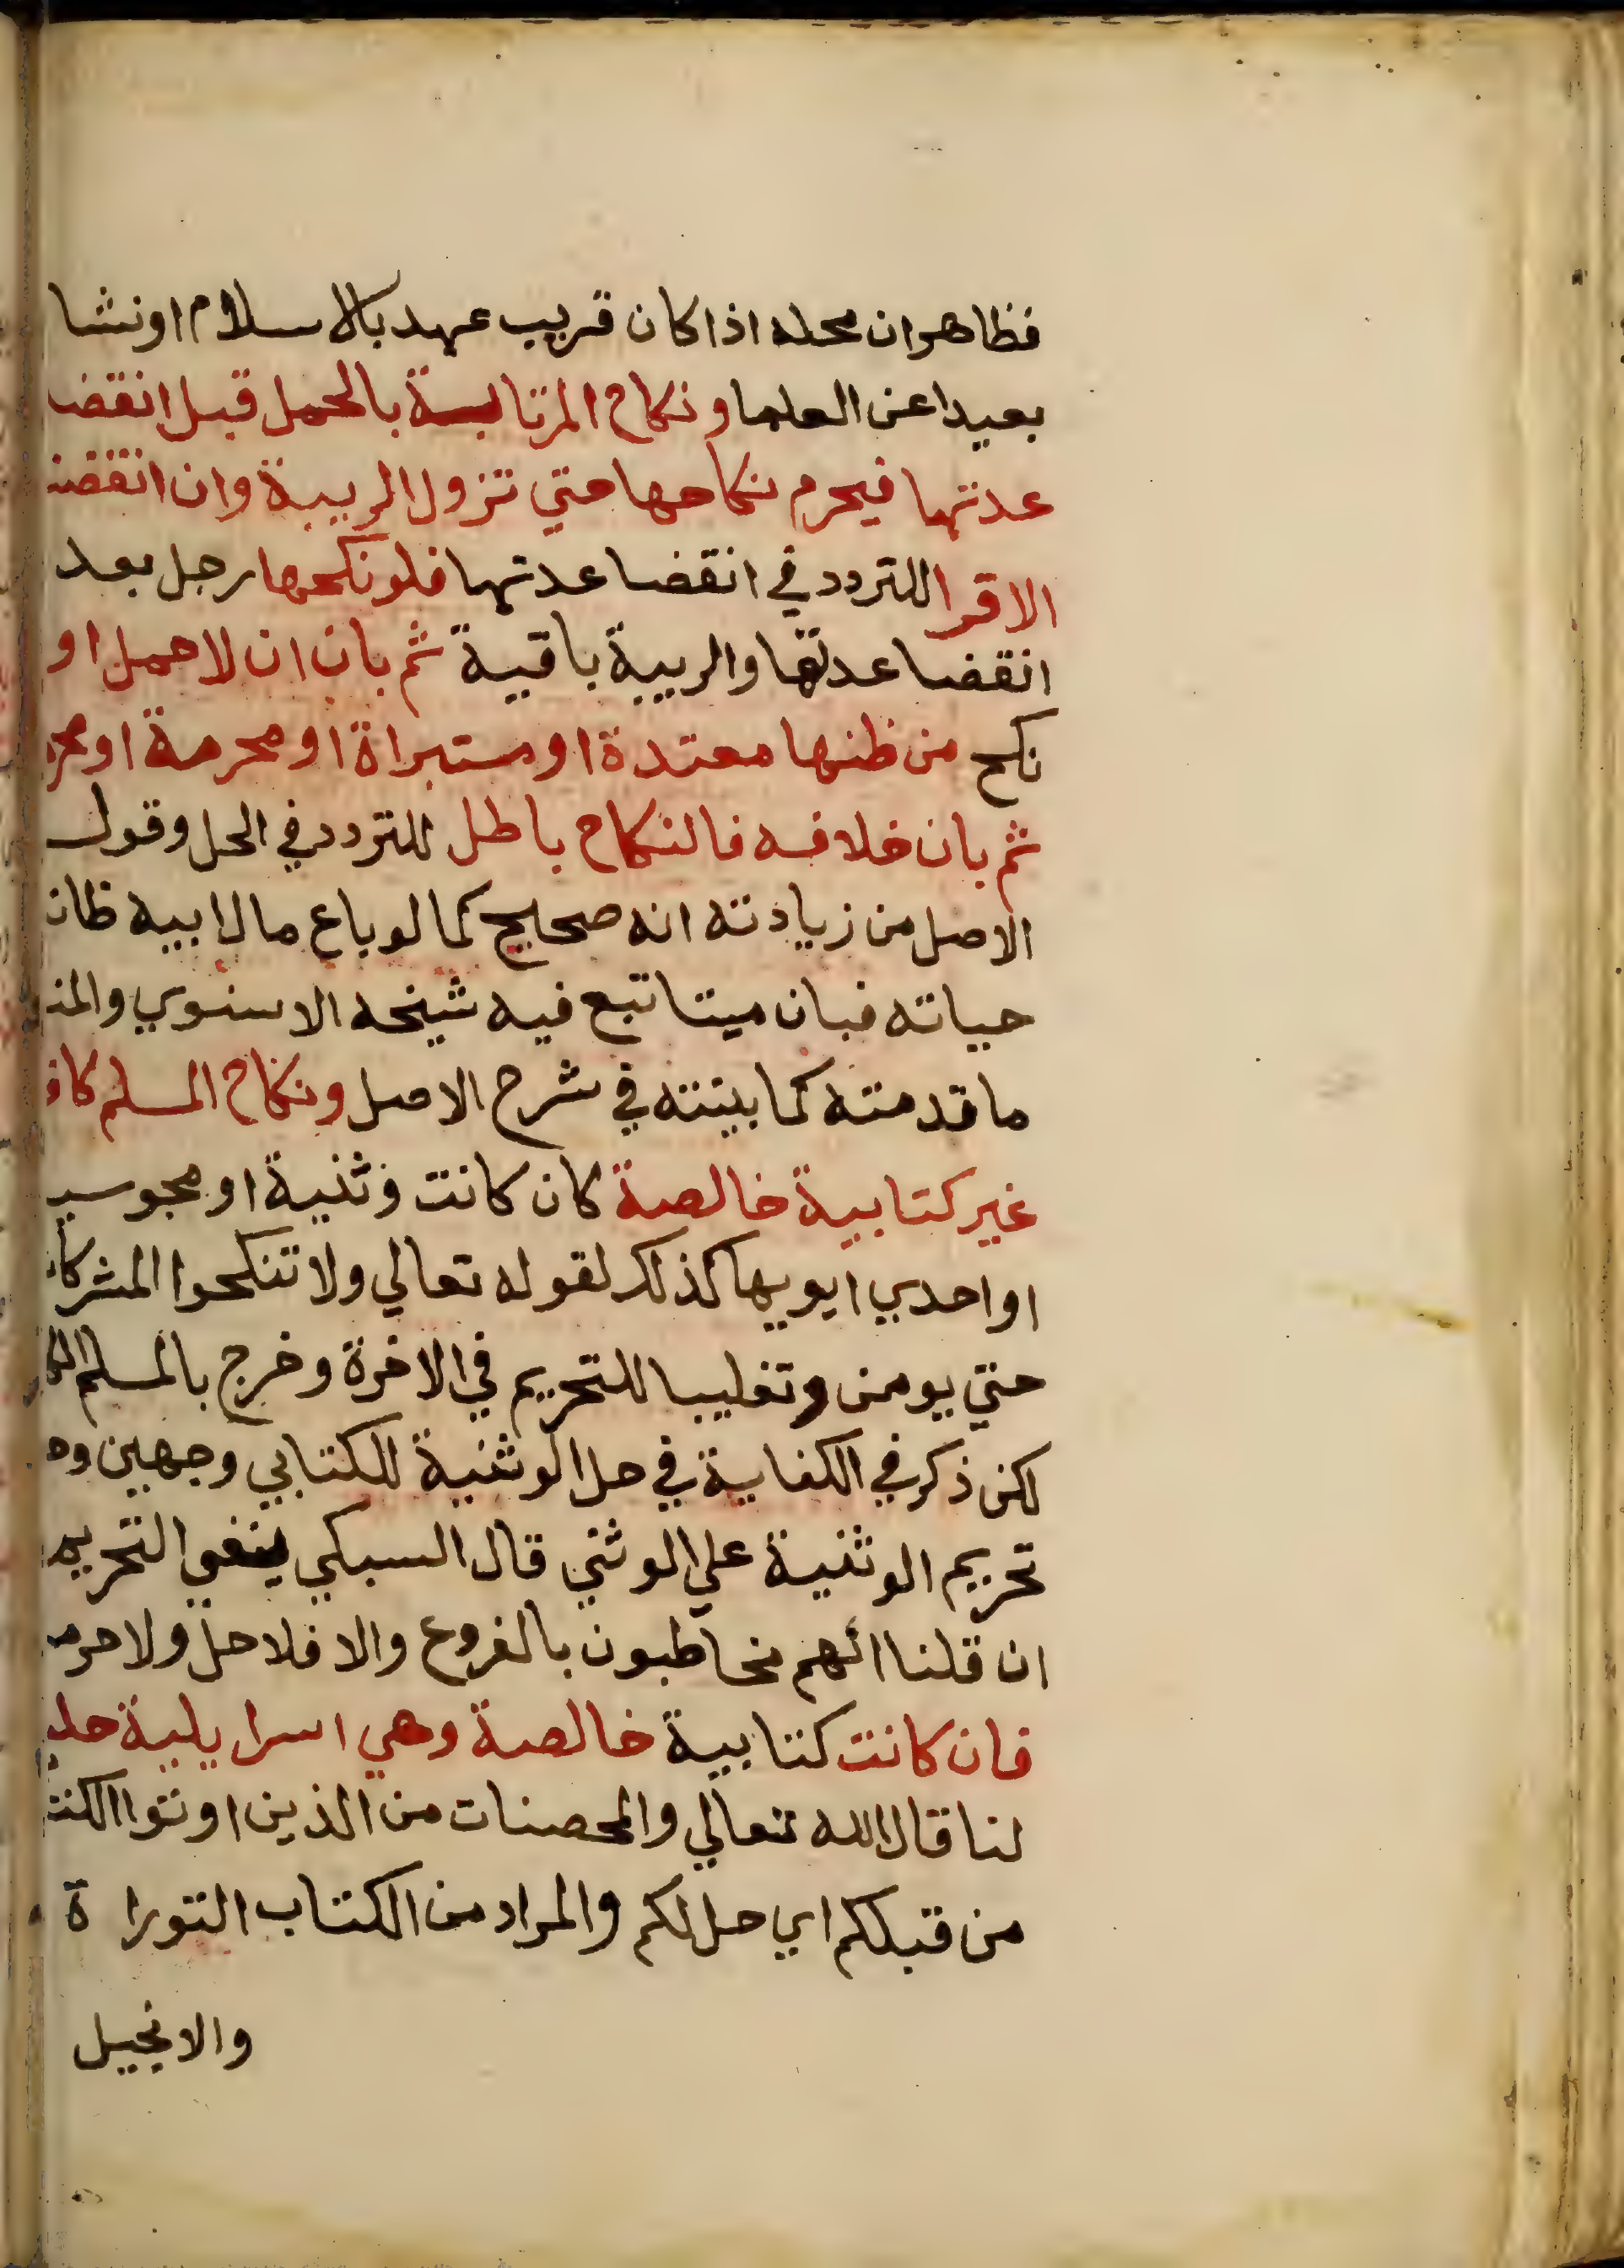 فظاهر ان محله اذا كان قريب عهد بالاسلام او نشا
بعيدا عن العلما ونكاح المرتابة بالحمل قبل انقضا
عدتها فيحرم نكاحها حتي تزول الريبة وان انقضت
الاقرا للتردد في انقضا عدتها فلو نكحها رجل بعد
انقضا عدتها والريبة باقية ثم بان ان لا حمل او
نكح من ظنها معتدة او مستبراة او محرمة او محر
ثم بان خلافه فالنكاح باطل للتردد في الحل وقول
الاصل من زيادته انه صحيح كما لو باع مال ابيه ظان
حياته فبان ميتا تبع فيه شيخه الاسنوي والمنـ
ما قدمته كما بينته في شرح الاصل ونكاح المسلم كافـ
غير كتابية خالصة كان كانت وثنية او مجوسيـ
او احدي ابويها كذلك لقوله تعالي ولا تنكحوا المشركا
حتي يومن وتغليبا للتحريم في الاخرة وخرج بالمسلم الكا
لكن ذكر في الكفاية في حل الوثنية للكتابي وجهين وهـ
تحريم الوثنية علي الوثني قال السبكي ينبغي التحريم
ان قلنا انهم مخاطبون بالفروع والا فلا حل ولا حرمـ
فان كانت كتابية خالصة وهي اسرايلية حلـ
لنا قال الله تعالي والمحصنات من الذين اوتوا الكتـ
من قبلكم اي حل لكم والمراد من الكتاب التوراة
والانجيل